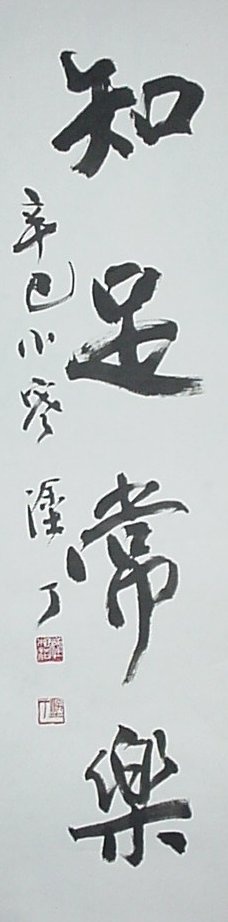 知足常樂
辛巳小寒 塗丁